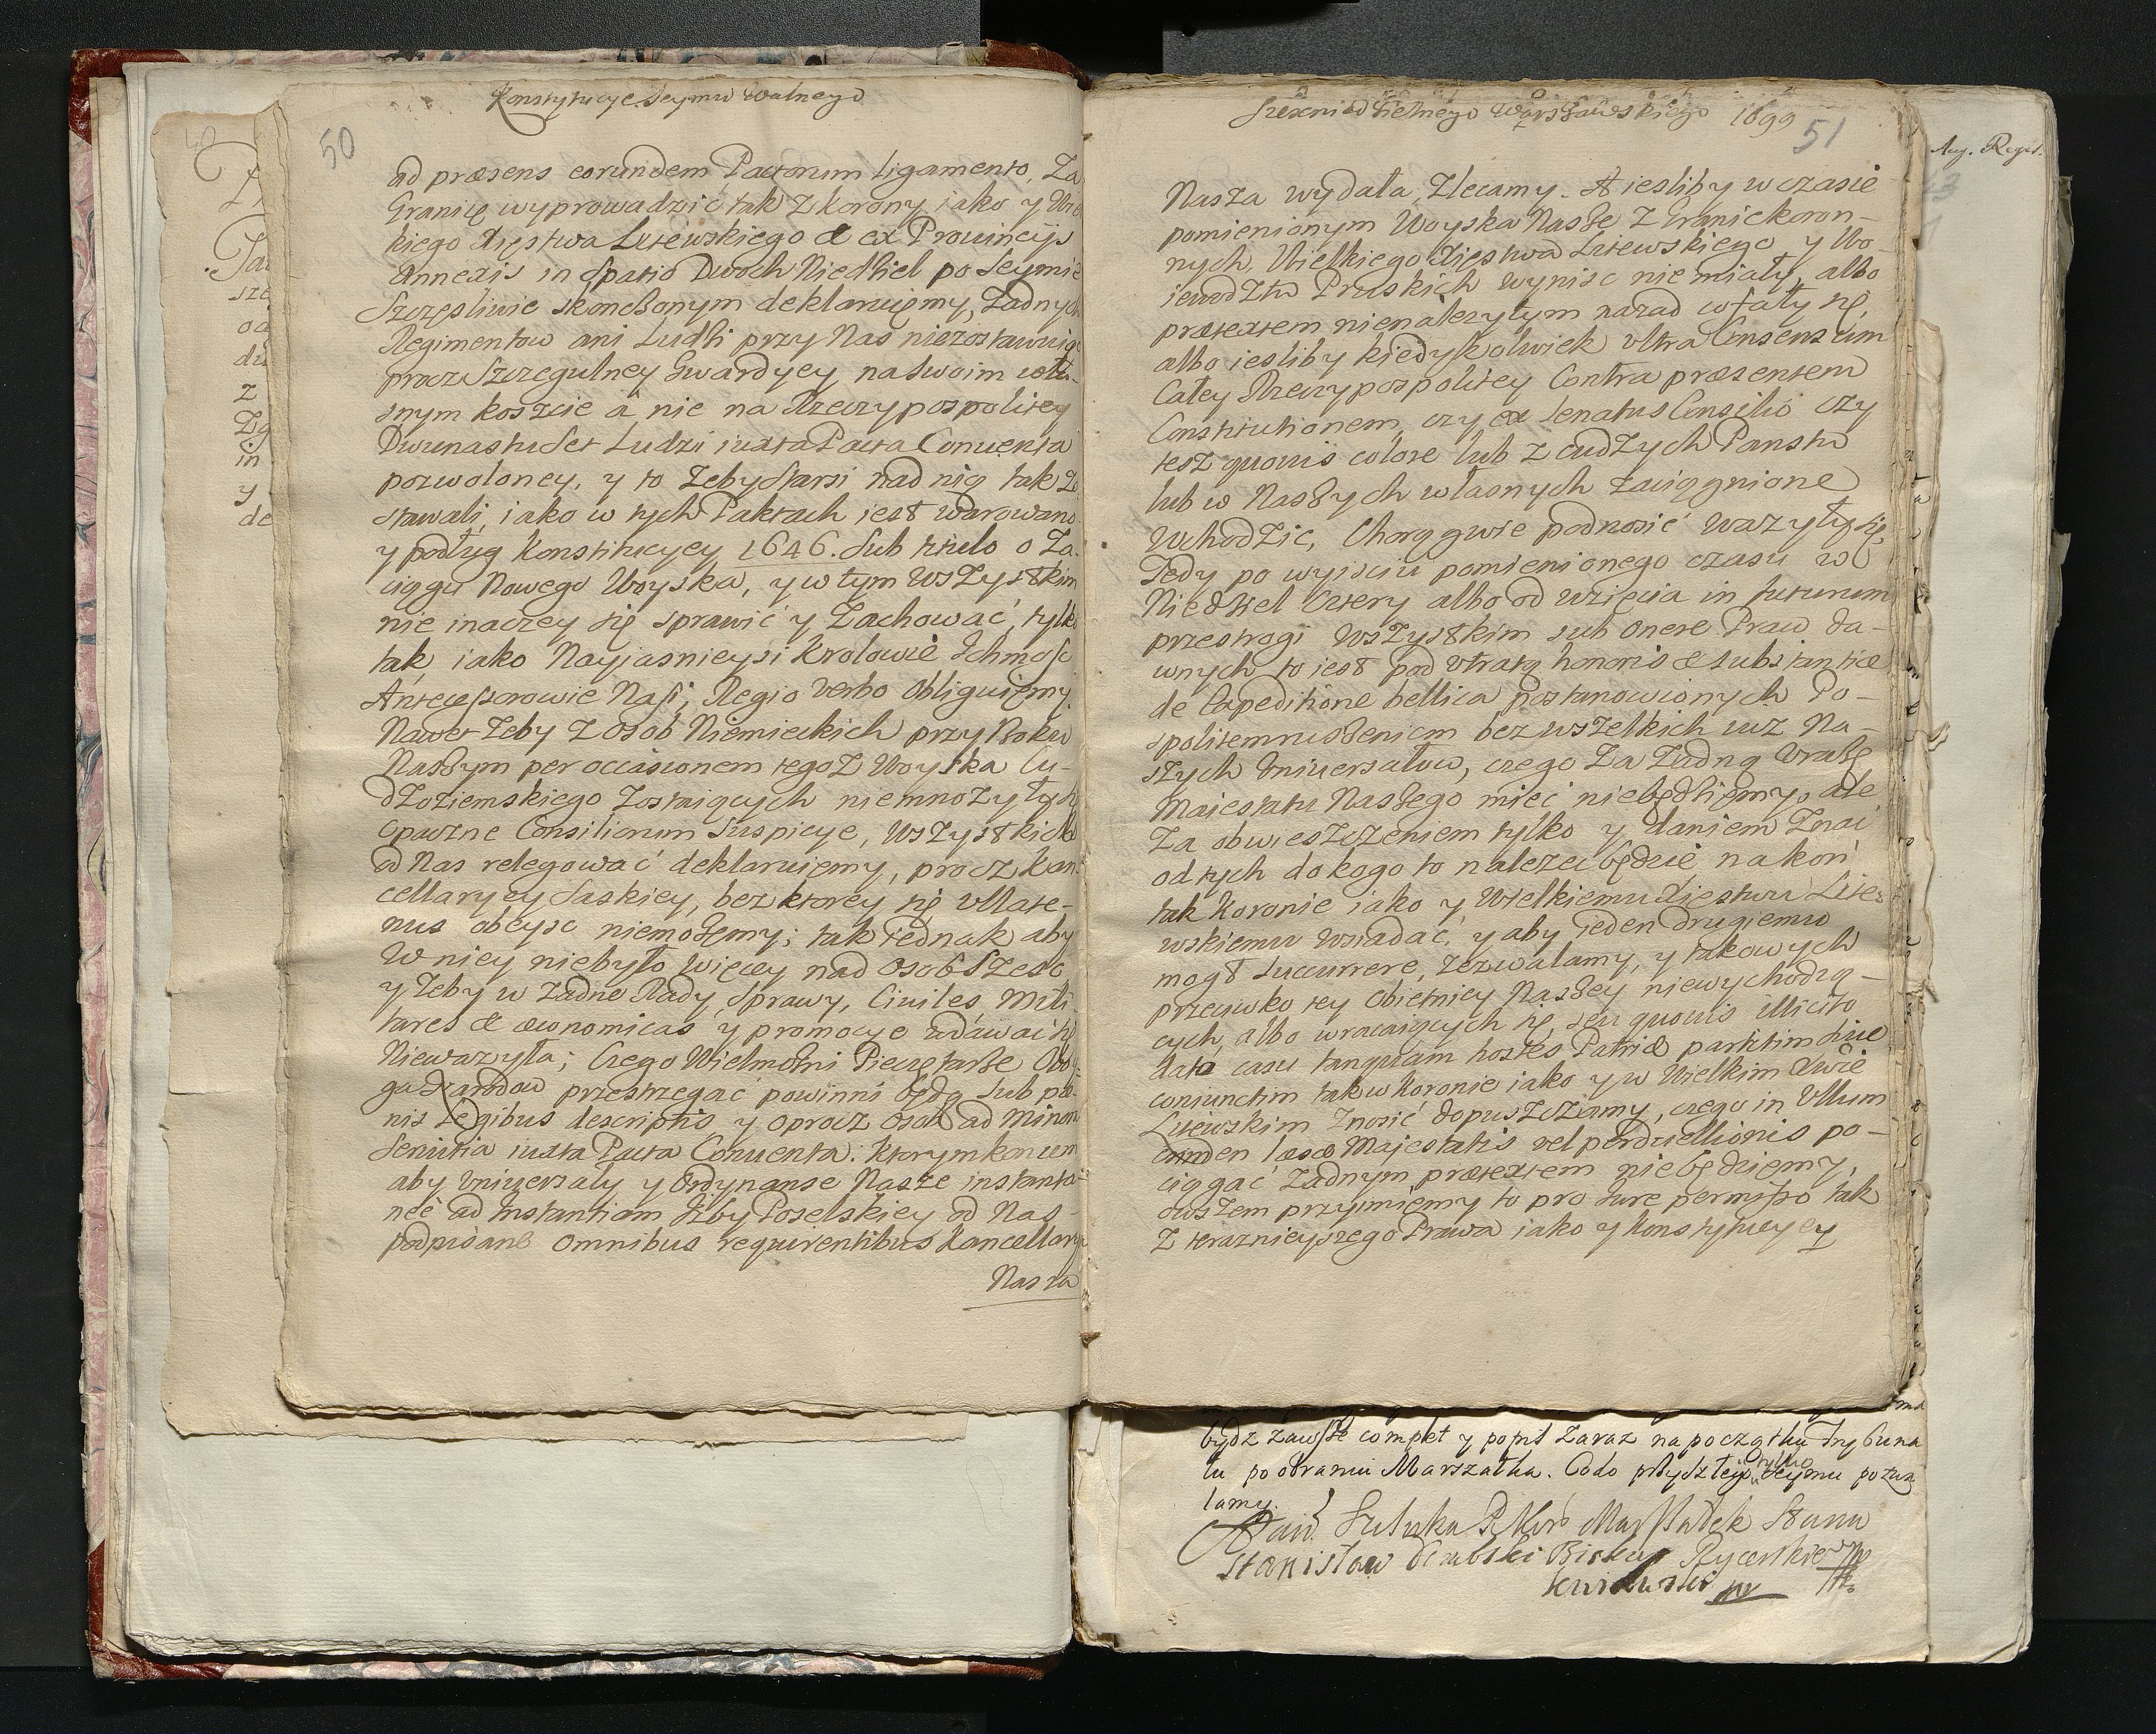 Konstytucye Seymu Walnego
50
ad præsens eorundem Pactorum ligamento, Za
Granicę wyprowadzić tak z Korony iako y Wiel
kiego Xięstwa Litewskiego & ex Provincijs
Annexis in Spatio Dwoch Niedźiel po Seymie
Szczęsliwie skonczonym deklaruięmy, Zadnych
Regimentow ani Ludźi przy Nas niezostawuiąc
procz Szczegulney Gwardyey na Swoim wła-
snym koszcie a nie na Rzeczypospolitey
Dwunastu Set Ludzi iuxta Pacta Conventa
pozwoloney, y to Zeby Starsi nad nią tak Zo
stawali, iako w tych Paktach iest warowano
y podług Konstitucyey 1646. Sub titulo o Za-
ciągu Nowego Woyska, y w tym wszystkim
nie inaczey się sprawić y Zachować, tylko
tak, iako Nayjasnieysi Krolowie Ichmośc
Antecessorowie Nasi, Regio verbo obliguięmy.
Nawet Zeby z osob Niemieckich przy Boku
Naszym per occasionem tegoz Woyska Cu-
dzoziemskiego Zostaiących niemnozyły się
opaczne Consiliorum Suspicye, Wszystkich
od Nas relegować deklaruięmy, procz Kan-
cellaryey Saskiey, bez ktorey się ullate-
nus obeysc niemożemy; tak iednak aby
W niey niebyło więcey nad Osob Szesc
y Zeby w Zadne Rady, Sprawy, Civiles, Mili-
tares & œconomicas y promocye wdawać się
Niewazyła; Czego Wielmożni Pieczętarze Oboy-
ga Narodow przestrzegać powinni będą sub pæ-
nis Legibus descriptis, y oprocz Osob ad Minora
Servitia iuxta Pacta Conventa: Ktorym koncem
aby Vniwersały y Ordynanse Nasze instanta-
neè ad Instantiam Izby Poselskiey od Nas
podpisane omnibus requirentibus Kancellarya
Nasza
Szescniedzielnego Warszawskiego 1699
51
Nasza wydała, Zlecamy. A iesliby w czasie
pomienionym Woyska Nasze z Granic koron-
nych, Wielkiego Xięstwa Litewskiego y Wo-
iewodztw Pruskich wynisc nie miały, albo
prætextem nienalezytym nazad cofały się,
albo iesliby kiedykolwiek ultra Consensum
Całey Rzeczypospolitey Contra præsentem
Constitutionem, czy ex Senatus Consilio czy
tesz quovis colore lub z cudzych Panstw
lub w Naszych własnych zaciągnione
Wchodzic, Chorągwie podnosić wazyły się,
Tedy po wyisciu pomienionego czasu w
Niedziel Cztery albo od wzięcia in futurum
przestrogi Wszystkim sub onere Praw da-
wnych to iest pod utratą honoris & substantiæ
de Expeditione bellica postanowionych Po-
spolitemruszeniem bez wszelkich iuz Na-
szych Vniversałow, czego Za Zadną Urazę
Maiestatu Naszego mieć niebędźięmy, ale
Za obwieszczeniem tylko y daniem Znać
od tych do kogo to nalezeć będzie na koń
tak Koronie iako y Wielkiemu Xięstwu Lite-
wskiemu wsiadać, y aby ieden drugiemu
mogł Succurrere, Zezwalamy, y takowych
przeciwko tey Obietnicy Naszey niewychodzą-
cych, albo wracaiących się, seu quovis illicito
dato casu tanquam hostes Patriæ partitim sive
coniunctim tak w Koronie iako y w Wielkim Xwie
Litewskim Znosić dopuszczamy, czego in Ullum
læsæ Majestatis vel perduellionis po-
ciągać Zadnym prætextem niebędzięmy,
owszem przyimięmy to pro Iure permisso tak
Z teraznieyszego Prawa iako y Konstytucyey
Aug. Regis.
bydz zawsze complet y popis Zaraz na początku Trybuna
łu po obraniu Marszałka. Co do przyszłego tylko Seymu pozwa
lamy.
Stanisław Biskup